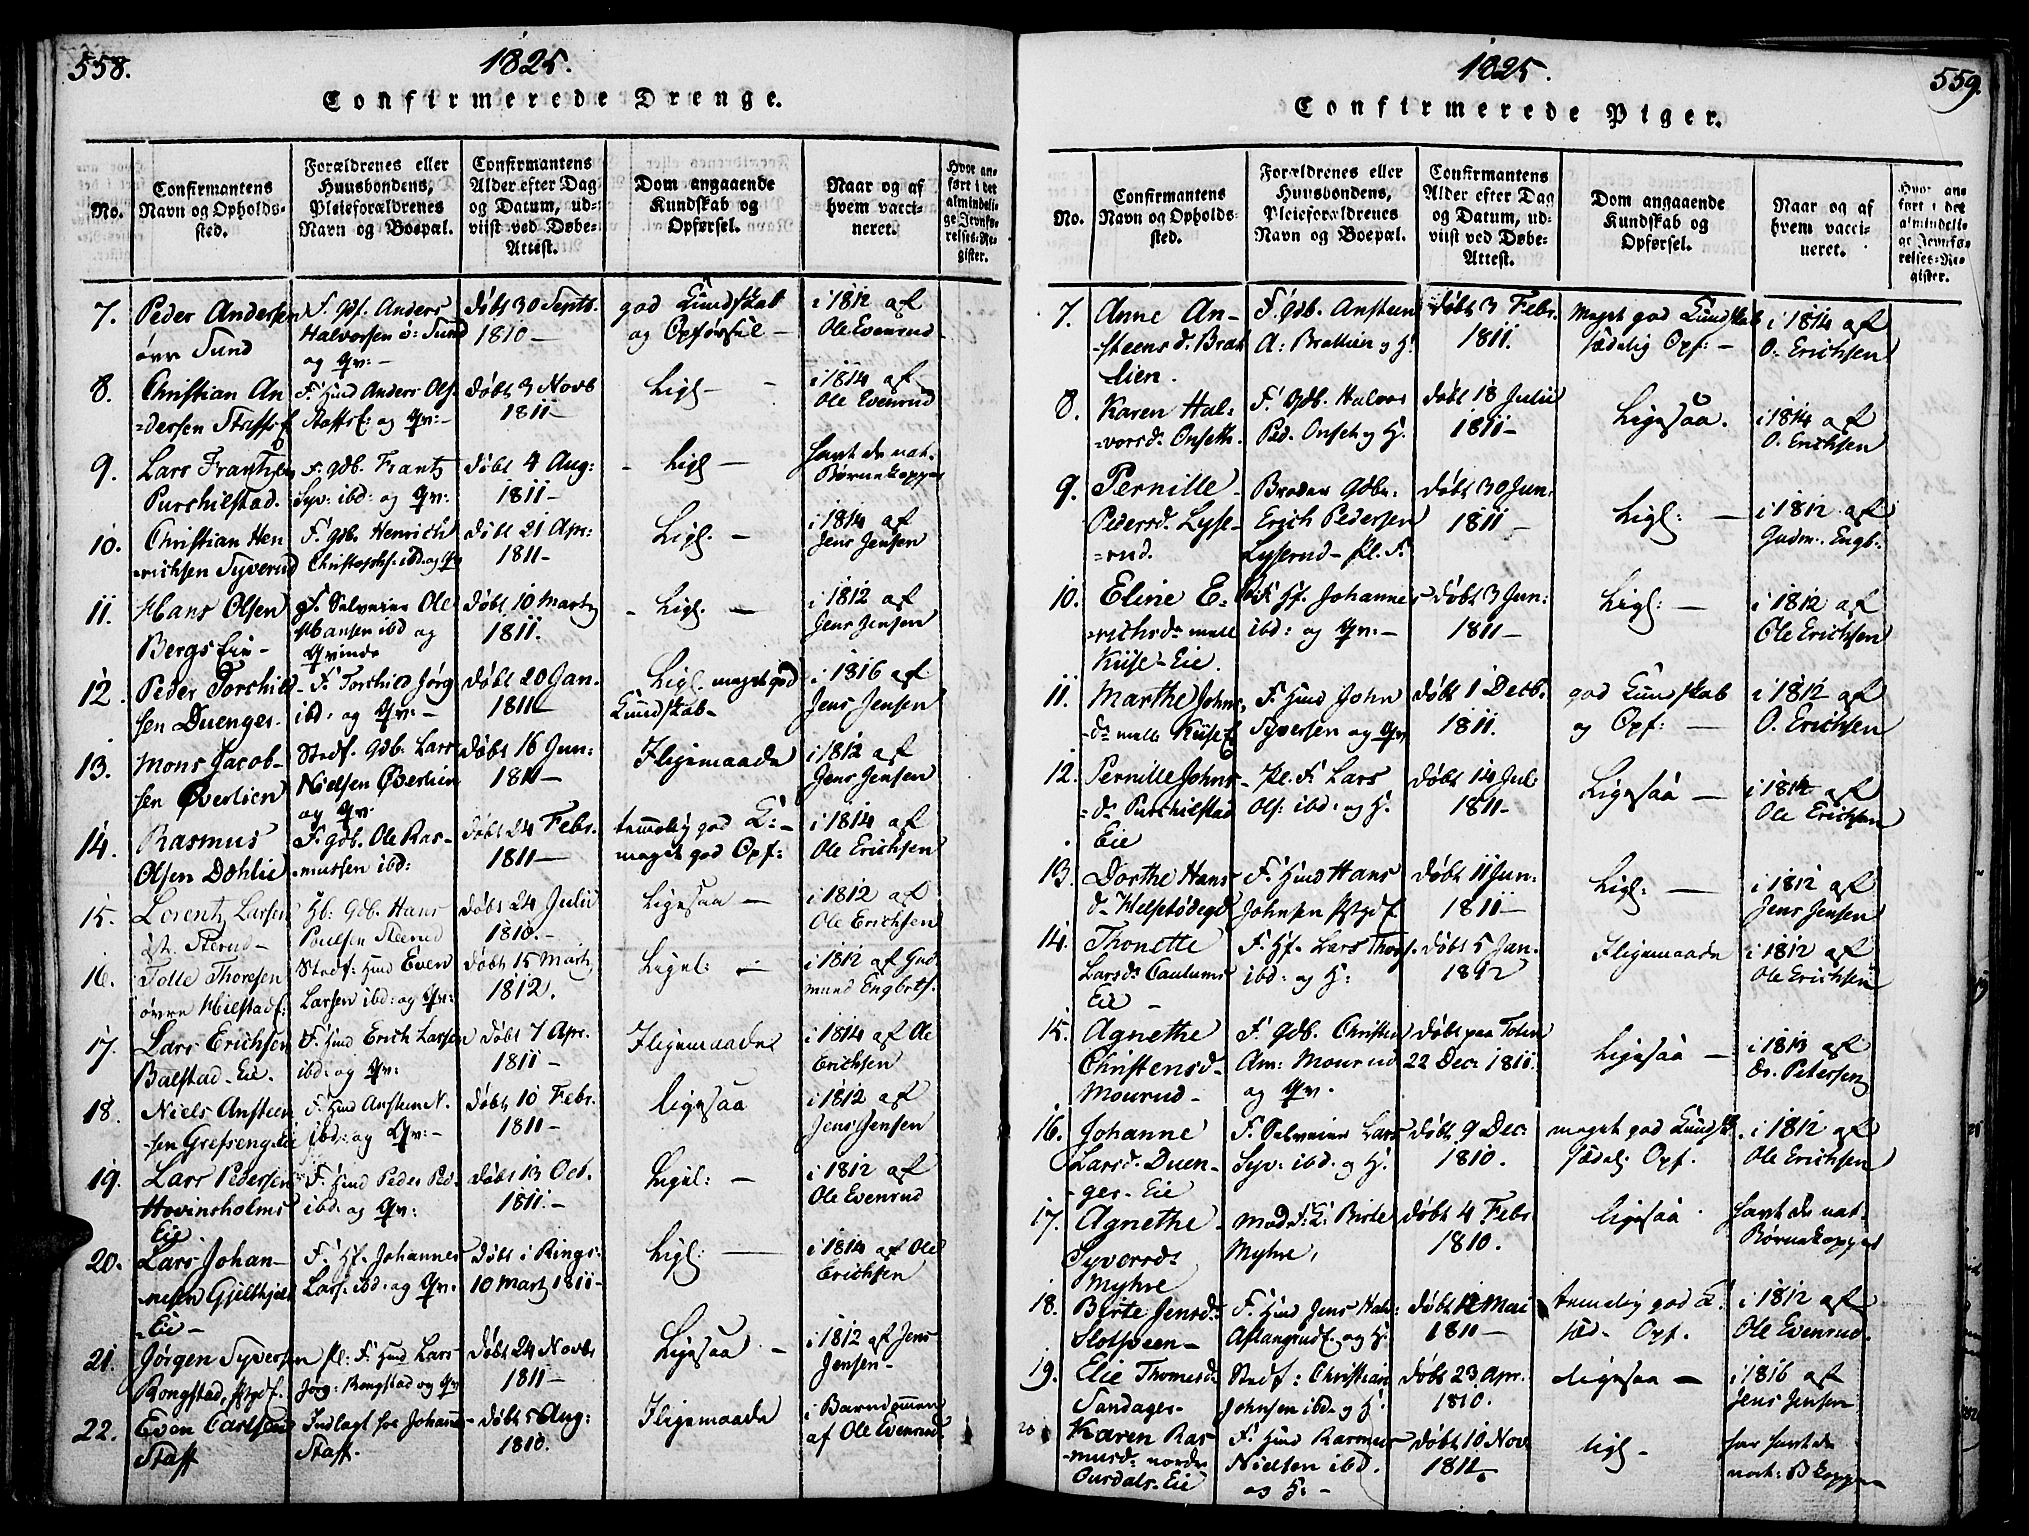 558.
1825.
Confirmerede Drenge.
No.
Confirmantens
Navn og Opholds-
sted.
Forældrenes eller
Huusbondens,
Pleieforældrenes
Navn og Boepæl.
Confirmantens
Alder efter Dag
og Datum, ud-
viist ved Døbe-
Attest.
Dom angaaende
Kundskab og
Opførsel.
Naar og af
hvem vacci-
neret.
Hvor an-
ført i det
almindeli-
ge Jevnfø-
relses-Re-
gister.
7.
Peder Andersen
øvr Sund
F. Gdf. Anders
Halvorsen ö: Sund
og Qv: -
døbt 30 Septb.
1810 -
god Kundskab
og Opførsel -
i 1812 af
Ole Evenrud
8.
Christian An
=dersen Staffsf
F. Huusd Anders Ols.
Staffsf: og Qv: -
døbt 3 Novb
1811 -
Ligl -
i 1814 af
Ole Evenrud
9.
Lars Frantzen
Purchilstad.
F. Gdb. Frantz
Syv: ibd: og Qv:
døbt 4 Aug:
1811 -
- Ligl -
havt de nat.
Børnekopper
10.
Christian Hen
=richsen Syverud
F. Gdb. Henrich
Christophs: ibd. og Qv
døbt 21 Apr:
1811 -
Ligl. -
i 1814 af
Jens Jensen
11.
Hans Olsen
Bergs Eie -
F. Selveier Ole
Hansen ibd og
Qvinde
døbt 10 Martz
1811.
- Ligl. -
i 1812 af
Jens Jensen
12.
Peder Torchild-
sen Duenges.
F. Torchild Jørg
ibd: og Qv: -
døbt 20 Jan.
1811 -
Ligl. maget god
Kundskab -
i 1816 af
Jens Jensen
13.
Mons Jacob-
sen Øverlien
Stedf. Gdb: Lars
Nielsen Øverlien
og Qv
døbt 16 Jun:
1811 -
Iligemaade
i 1812 af
Jens Jensen
14.
Rasmus
Olsen Dæhlie
F. Gdb. Ole Ras-
mussen ibd:
døbt 24 Febr.
1811 -
temmelig god K: -
maget god Opf:
i 1814 af
Ole Erichsen
15.
Lorentz Larsen
Sterud -
Hb: Gdb. Hans
Poulsen Steerud
døbt 24 Julii
1810. -
Ligesaa -
i 1812 af
Ole Erichsen
16.
Tolle Thoresen
øvre Hielstad
Stedf: Huusd Even
Larsen ibd: og Qv:
døbt 15 Martz
1812.
Ligel: -
i 1812 af Gud
mund Engbrets.
17.
Lars Erichsen
Balstad - Eie.
F. Huusd Erich Larsen
ibd: og Qv:
døbt 7 Apr.
1811 -
Iligemaade
i 1814 af Ole
Erichsen
18.
Niels Ansteen
sen Grefseng. Eie
F. Huusd Ansteen N.
ibd: og Qv: -
døbt 10 Febr.
1811 -
Ligesaa
i 1812 af
Jens Jensen
19.
Lars Pedersen
Hovinsholms
Eie.
F. Huusd Peder Ped.
ibd: og Qv:
døbt 13 Oct.
1811. -
Ligel: -
i 1812 af
Ole Evenrud
20.
Lars Johan-
nesen
Eie -
F. Hf. Johannes
Lars: ibd: og Qv:
døbt i Rings:
10 Martz 1811 -
Ligl: -
i 1814 af Ole
Erichsen
21.
Jörgen Syversen
Rongstad,
Pl: F. Huusd Lars
Jørg: Rongstad og Qv
døbt 24 Novb
1811 -
Ligesaa -
i 1812 af Jens
Jensen -
22.
Even Carlsen
Staff
Indlagt hos Johann-
Staff.
døbt 5 Aug:
1810.
Iligemaade
i Barndommen
af Ole Evenrud
559.
1825.
Confirmerede Piger.
No.
Confirmantens
Navn og Opholds-
sted.
Forældrenes eller
Huusbondens,
Pleieforældrenes
Navn og Boepæl.
Confirmantens
Alder efter Dag
og Datum, ud-
viist ved Døbe-
Attest.
Dom angaaende
Kundskab og
Opførsel.
Naar og af
hvem vacci-
neret.
Hvor an-
ført i det
almindeli-
ge Jevnfø-
relses-Re-
gister.
7.
Anne An-
steens d. Brat
lien.
F. Gdb. Ansteen
A: Brattlien og H:
døbt 3 Febr.
1811.
Maget god Kundskab
sædelig Opf: -
i 1814 af
O. Erichsen
8.
Karen Hal:
=vorsd. Onseth.
F. Gdb. Halvor
Ped. Onset og H.
døbt 18 Julii
1811 -
Ligesaa.
i 1814 af
O. Erichsen
9.
Pernille
Pedersd. Lyse-
=rud.
Broder Gdbr.
Erich Pedersen
Lyserud - Pl. F.
døbt 30 Jun:
1811 -
Ligl: -
i 1812 af
Gudm. Engb:
10.
Eline E-
=richsd. mell
Kiise-Eie.
Hf. Johannes
ibd: og Qv: -
døbt 3 Jun:
1811 -
Ligl: -
i 1812 af
Ole Erichsen
11.
Marthe Johns
d. mell Kiise
F. Huusd John
Syversen og Qv
døbt 1 Decb.
1811.
god Kundskab
og Opf: -
i 1812 af
O. Erichsen
12.
Pernille Johns
=d. Purchilstad
Eie
Pl. F. Lars
Ols: ibd: og H.
døbt 14 Jul
1811 -
Ligesaa -
i 1814 af
Ole Erichsen
13.
Dorthe Hans
d.
F. Huusd Hans
Johnsen
døbt 11 Jun:
1811 -
Ligl: -
i 1812 af
Jens Jensen
14.
Thonette
Larsd. Caulums
Eie -
F. Hf. Lars Thorg.
ibd: og H:
døbt 5 Jan.
1812
Iligemaade
i 1812 af
Ole Erichsen
15.
Agnethe
Christensd.
Mourud -
F. Gdb. Christen
Am: Mourud
og Qv.
døbt paa Toten
22 Dec: 1811.
Ligesaa -
i 1813 af
Dr. Petersen
16.
Johanne
Larsd. Duen-
ges. Eie
F. Selveier Lars
Syv: ibd. og H.
døbt 9 Dec:
1810.
maget god Kundsk
sædel: Opf.
i 1812 af
Ole Erichsen
17.
Agnethe
Syversd.
Myhre
Mod: Birte
Myhre,
døbt 4 Febr
1810.
Ligesaa
havt de nat.
Børnekopper
18.
Birte Jensd.
Slotsveen -
F. Huusd Jens Hal:
og H:
døbt 12 Mai
1811 -
temelig god K:
sæd. Opf.
i 1812 af
Ole Evenrud.
19.
Elie Thomesd.
Sandager -
Stedf: Christian
Johnsen ibd. og H:
døbt 23 Apr.
1810.
Ligesaa -
i 1816 af
Jens Jensen
20
Karen Ras
musd. nordr
Eie
F. Huusd Rasmus
Nielsen ibd.
og H: -
døbt 10 Nov
1811.
Ligl -
har havt de
nat: B kopper